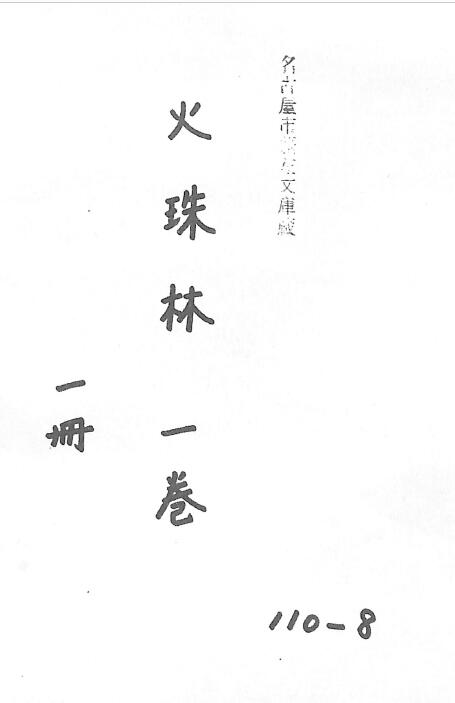 名古屋市蓬左文庫蔵
火珠林 一巻
一冊
110-8